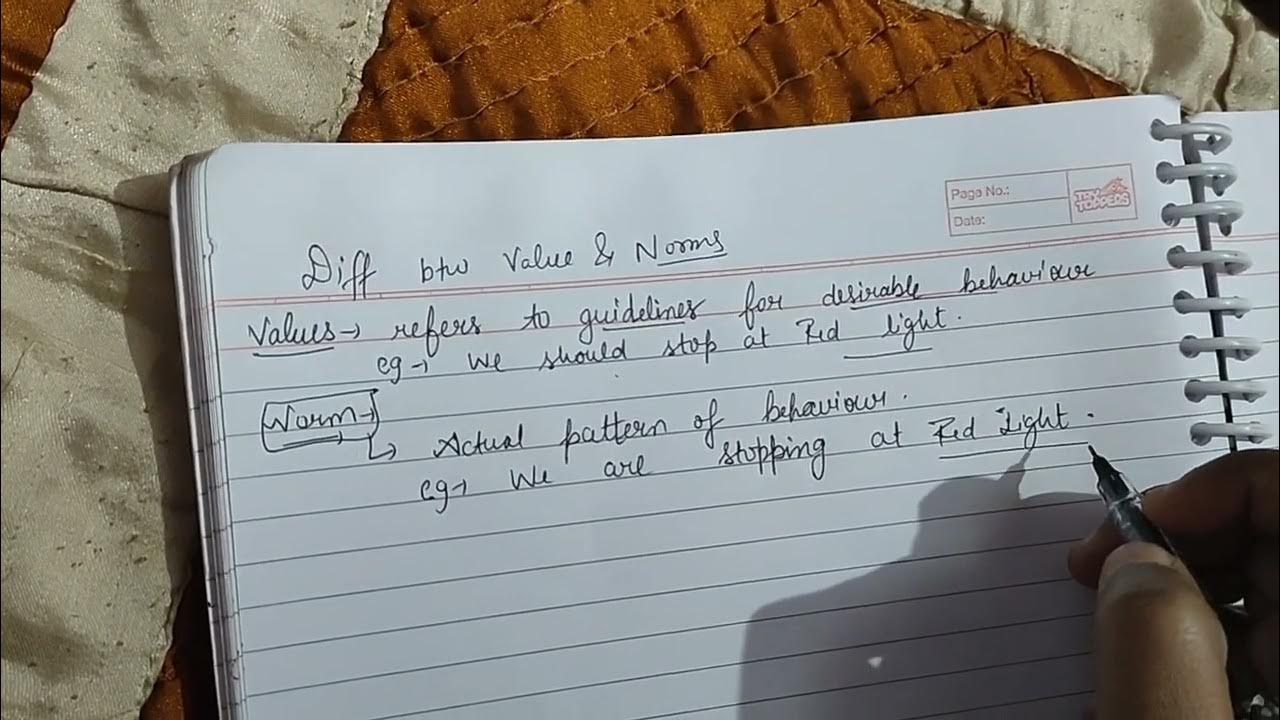 Page No.:
Date:
TINY TOPPERS
Diff btw Value & Norms
Values → refers to guidelines for desirable behaviour
eg → We should stop at Red light.
Norm →
↳ Actual pattern of behaviour.
eg → We are stopping at Red Light.